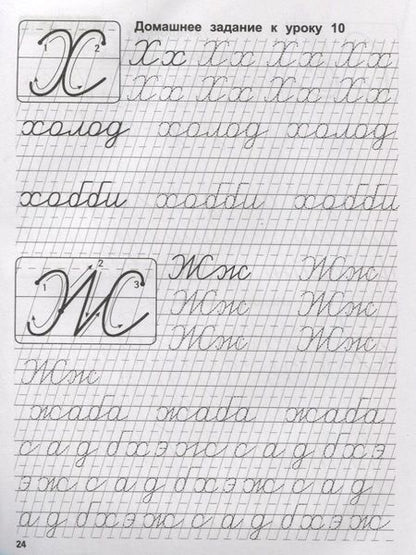 Домашнее задание к уроку 10
1 2 Хх Хх Хх Хх
Хх Хх Хх Хх
холод холод холод
хобби хобби хобби
1 2 3 Жж Жж
Жж Жж
Жж Жж
Жж
жаба жаба жаба
с а д б х э ж с а д б х э
э ж с а д б х э ж с а д
а д б х э ж с а д б х э ж
24